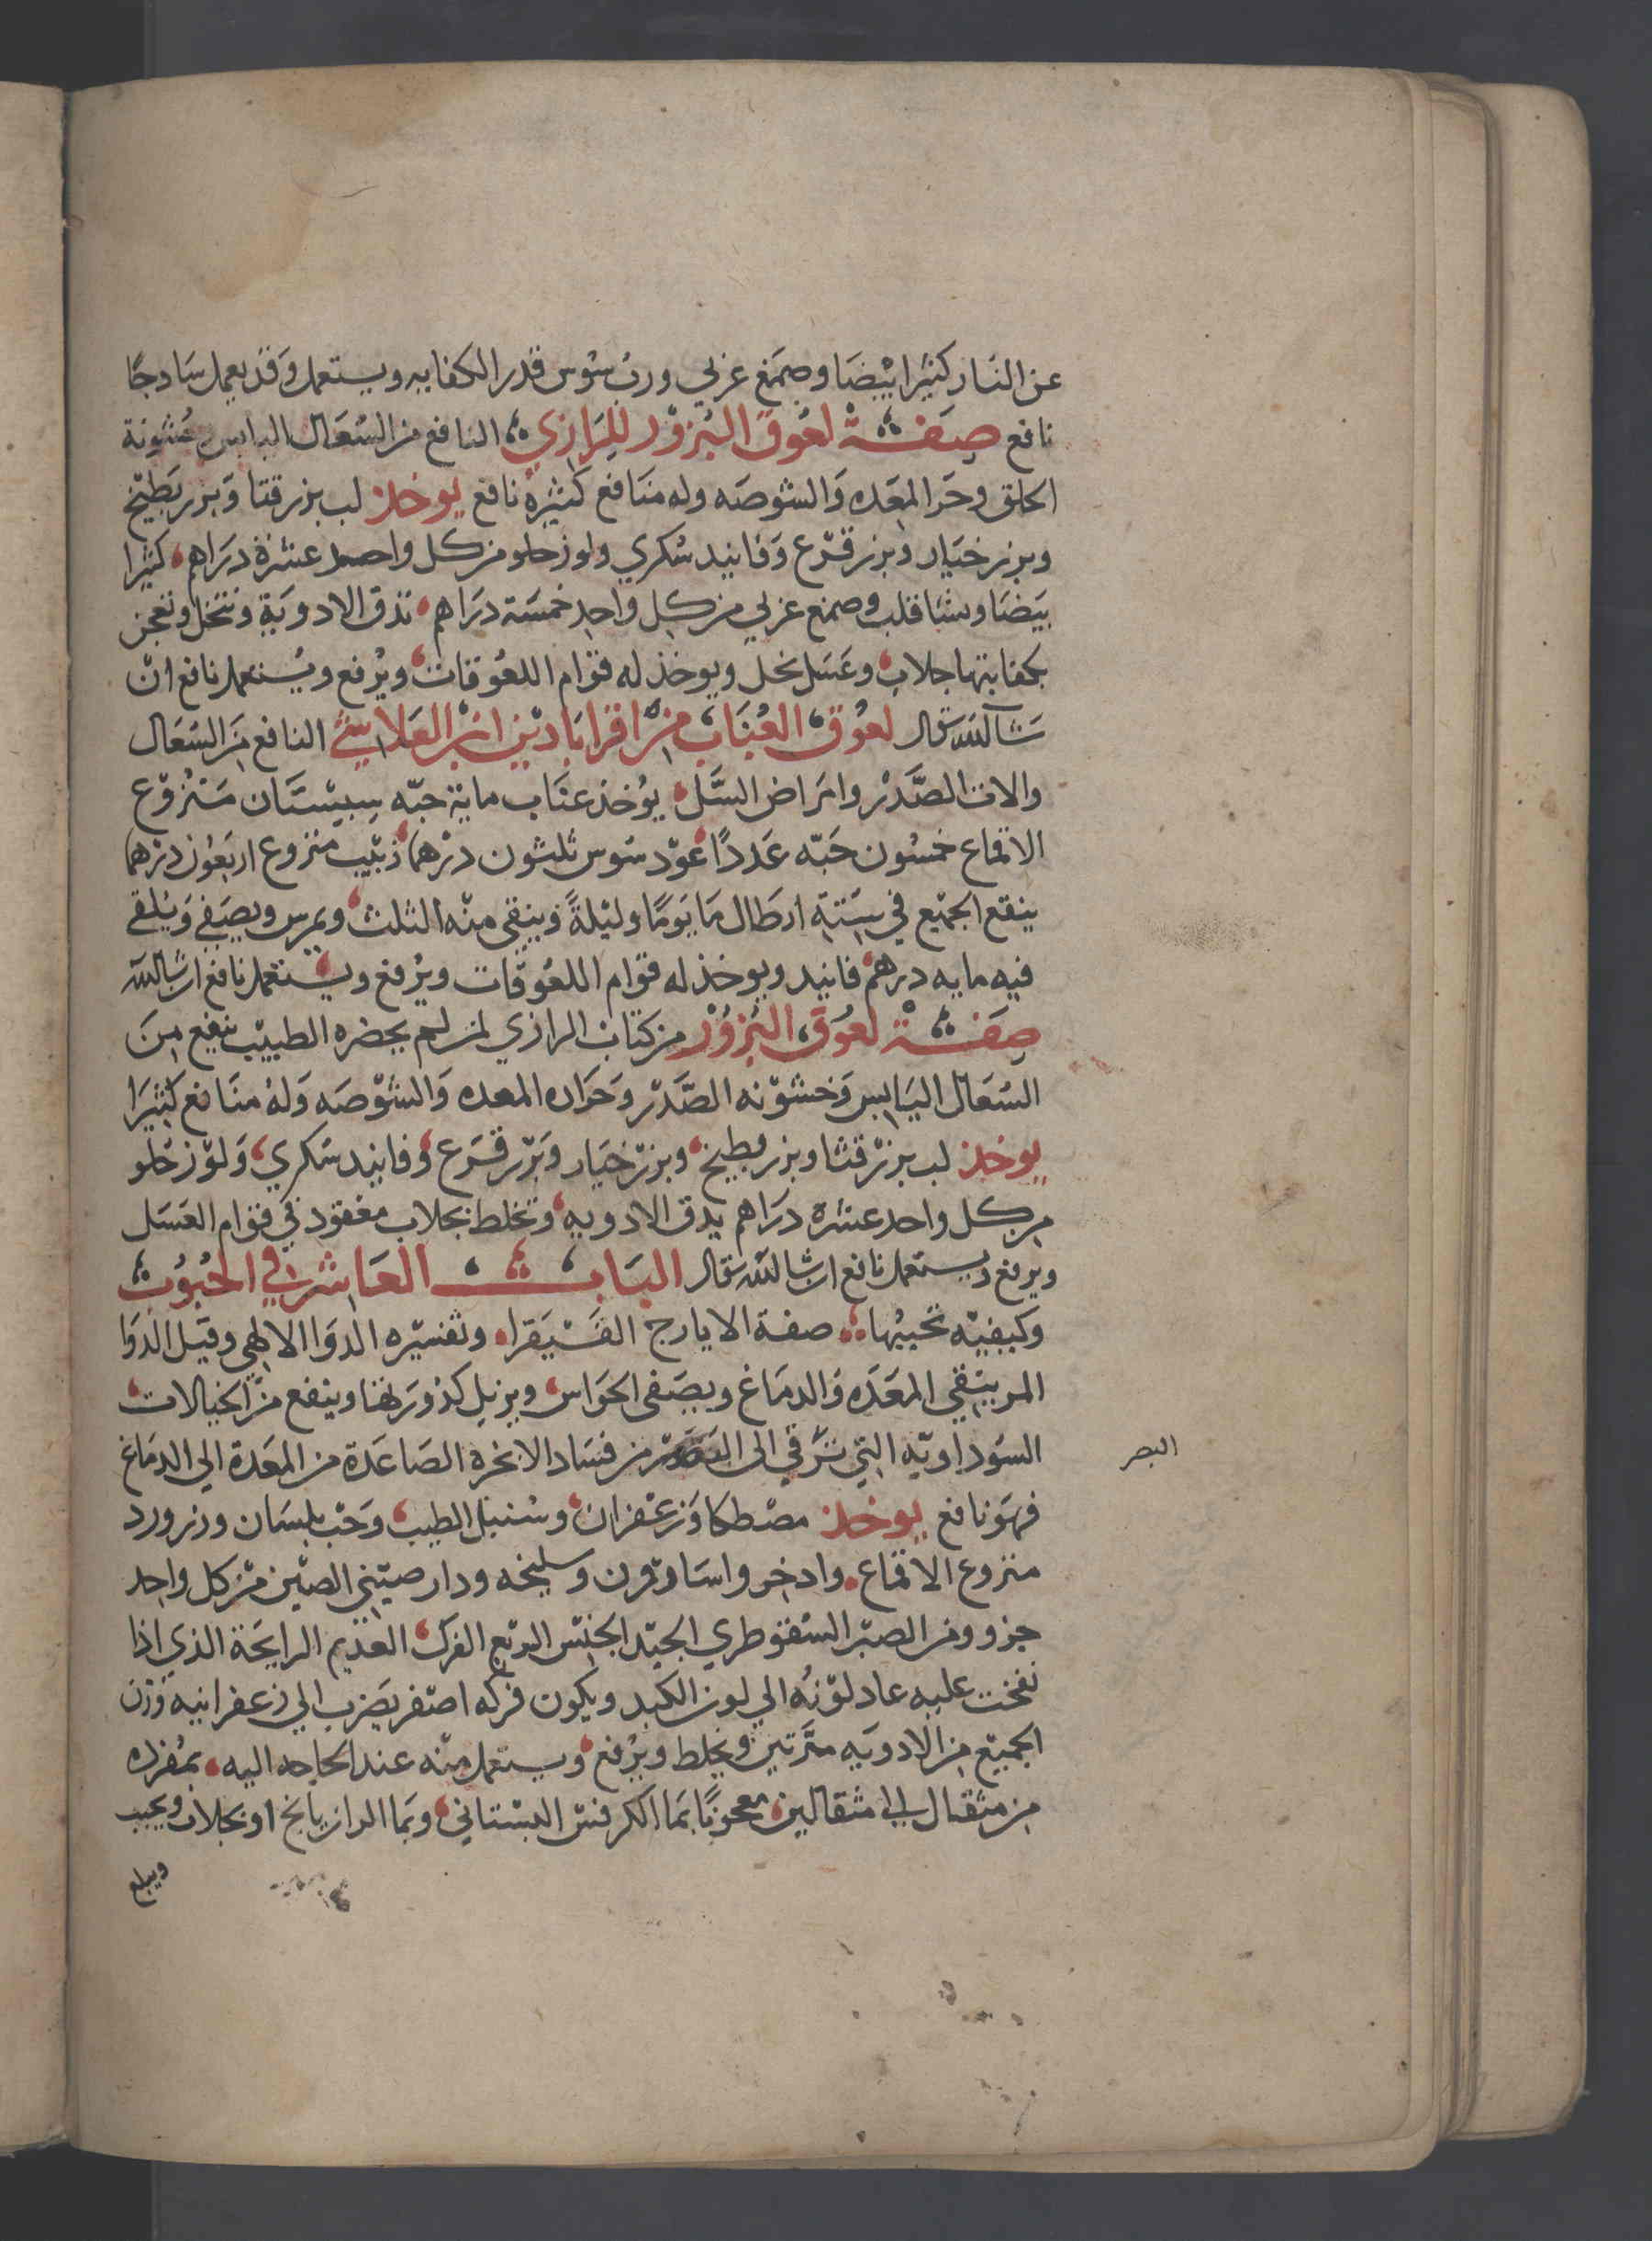 عن النار كثيرا بيضا وصمغ عربي ورب سوس قدر الكفايه ويستعمل وقد يعمل سادجا
نافع صفة لعوق البزور للرازي النافع من السعال اليابس وخشونة
الحلق وحر المعده والشوصه وله منافع كثيرة نافع يوخذ لب بزر قثا وبزر بطيخ
وبزر خيار وبزر قرع وفانيد سكري ولوز حلو من كل واحد عشرة دراهم كثيرا
بيضا ونشا قلب وصمغ عربي من كل واحد خمسة دراهم تدق الادوية وتنخل وتعجن
بكفايتها جلاب وعسل نحل ويوخذ له قوام اللعوقات ويرفع ويستعمل نافع ان
شا الله تعال لعوق العناب من اقراباذين ابن العلا النافع من السعال
والات الصدر وامراض السل يوخذ عناب ماية حبه سبستان منزوع
الاقماع خمسون حبه عددا عود سوس ثلثون درهما زبيب منزوع اربعون درهما
ينقع الجميع في ستة ارطال ما يوما وليلة وينقى منه الثلث ويمرس ويصفى ويلقى
فيه مايه درهم فانيد ويوخذ له قوام اللعوقات ويرفع ويستعمل نافع ان شا الله
صفة لعوق البزور من كتاب الرازي لمن لم يحضره الطبيب ينفع من
السعال اليابس وخشونه الصدر وحراره المعده والشوصه وله منافع كثيرا
يوخذ لب بزر قثا وبزر بطيخ وبزر خيار وبزر قرع وفانيد سكري ولوز حلو
من كل واحد عشره دراهم يدق الادويه وتخلط بجلاب معقود في قوام العسل
ويرفع ويستعمل نافع ان شا الله تعال الباب العاشر في الحبوب
وكيفيته تحبيبها صفة الايارج الفيقرا وتفسيره الدوا الالهي وقيل الدوا
المر ينقي المعده والدماغ ويصفى الحواس ويزيل كدورتها وينفع من الخيالات
السوداويه التي ترقي الى البصر من فساد الابخره الصاعدة من المعدة الي الدماغ
البصر
فهو نافع يوخذ مصطكا وزعفران وسنبل الطيب وحب بلسان وزر ورد
منزوع الاقماع وادخر واسارون وسليخه ودار صيني الصين من كل واحد
جزو ومن الصبر السقوطري الجيد الجنس السريع الفرك العديم الرايحة الذي اذا
نفخت عليه عاد لونه الي لون الكبد ويكون فركه اصفر يضرب الي زعفرانيه وزن
الجميع من الادويه مرتين ويخلط ويرفع ويستعمل منه عند الحاجه اليه بمفرده
من مثقال الى مثقالين معجونا بما الكرفس البستاني وبما الرازيانج او بجلاب ويحبب
ويبلع